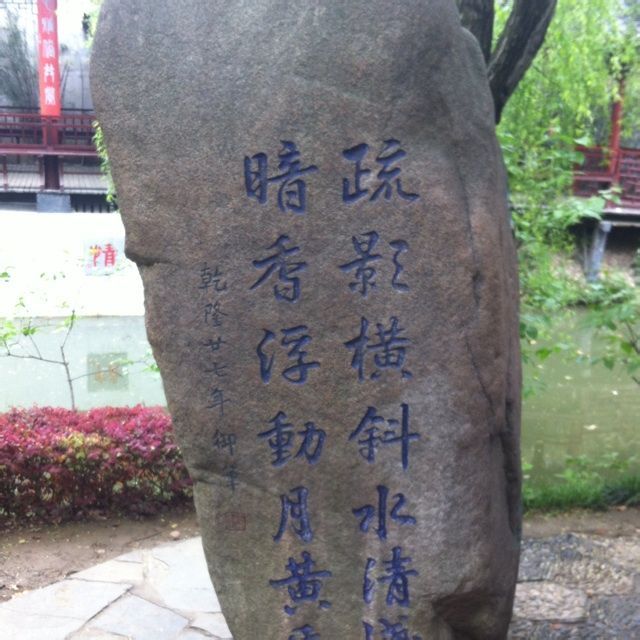 疏影横斜水清淺
暗香浮動月黄
乾隆廿七年御筆
情